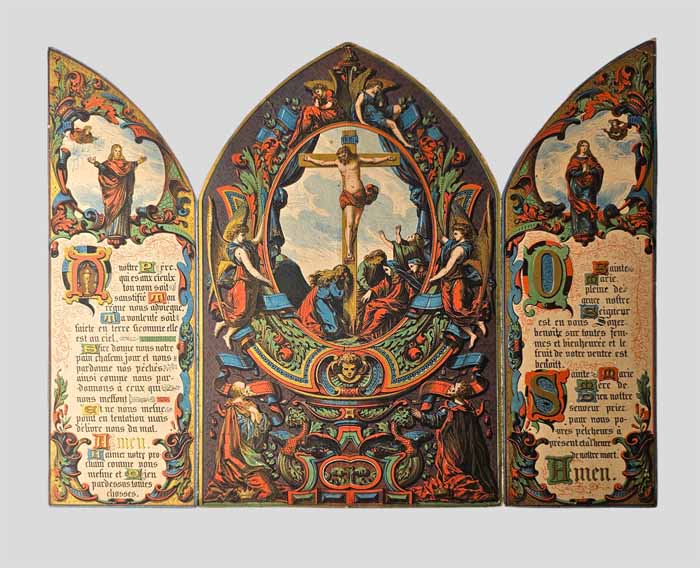 INRI
Nostre Père
qui es aux cieulx
ton nom soit
sanctifié Ton
règne nous advieñe
Ta volenté soit
faicte en terre sicomme elle
est au ciel.
Sire donne nous nostre
pain chascun jour et nous
pardonne nos péchés
ainsi comme nous par
donnons à ceux qui
nous meffont
Et ne nous meine
point en tentation mais
délivre nous du mal.
Amen.
Aimer nostre pro
chain comme nous
mesme et Dieu
pardessus toutes
choses.
O Sainte
Marie
pleine de
grace nostre
Seigneur
est en vous Soyez
benoite sur toutes fem-
mes et bienheuree et le
fruit de vostre ventre est
benoist.
Sainte Marie
Mère de
Dieu nostre
seigneur priez
pour nous po-
vres pescheurs à
présent et à l'heure
de nostre mort.
Amen.